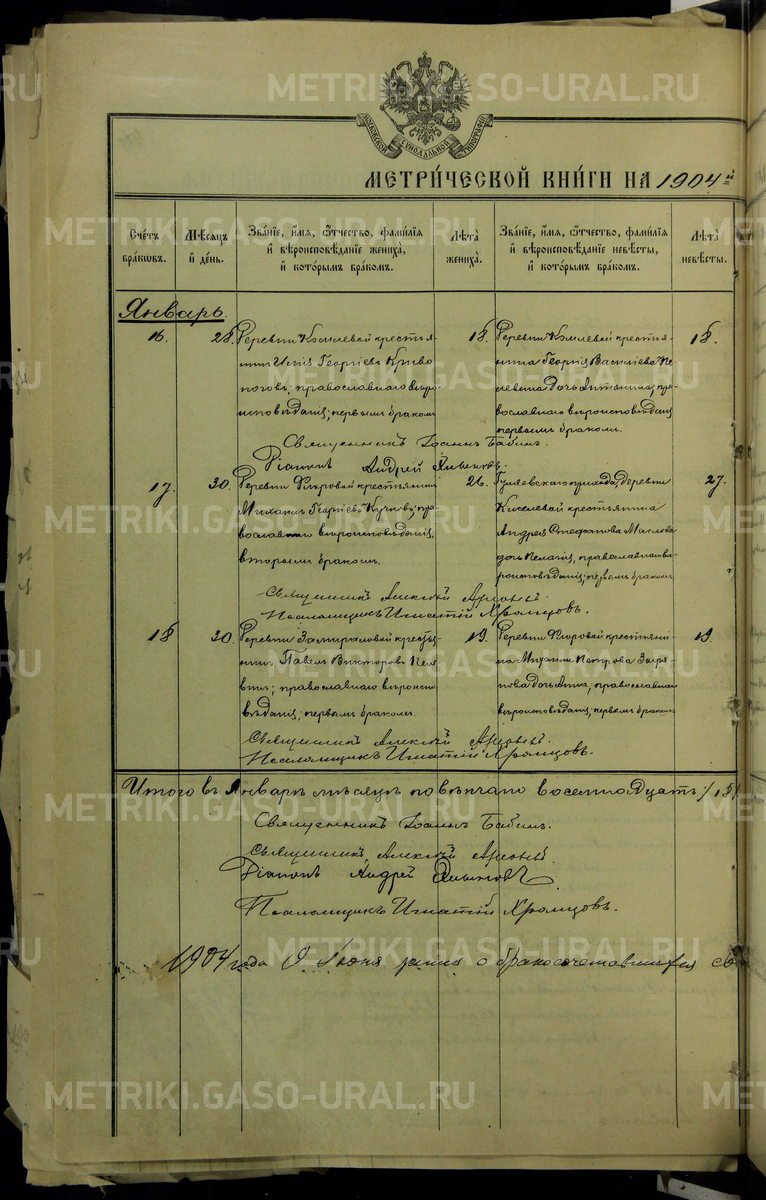 METRIKI.GASO-URAL.RU
МОСКОВСКОЙ СѴНОДАЛЬНОЙ ТИПОГРАФІИ
МЕТРИ́ЧЕСКОЙ КНИ́ГИ НА 1904й
Сче́тъ бра́ковъ.
Мѣ́сяцъ и҆ де́нь.
Зва́нїе, и҆́мѧ, ѻ҆́тчество, фами́лїѧ
и҆ вѣроисповѣ́данїе жениха̀,
и҆ кото́рымъ бра́комъ.
Лѣ́та жениха̀.
Зва́нїе, и҆́мѧ, ѻ҆́тчество, фами́лїѧ
и҆ вѣроисповѣ́данїе невѣ́сты,
и҆ кото́рымъ бра́комъ.
Лѣ́та невѣ́сты.
Январь
16. 28. Деревни Киселевой крестья-
нинъ Георгіевъ Криво
ноговъ; православнаго вѣро-
исповѣданія; первымъ бракомъ
18.
Деревни Киселевой крестья-
нина Георгія Василіева Пе-
левина дочь Антонина; пра-
вославнаго вѣроисповѣданія
первымъ бракомъ.
18.
Священникъ Іоаннъ Бабинъ.
Діаконъ Андрей
17. 30. Деревни Фкровой крестьянинъ
Михаилъ Георгіевъ пра-
вославнаго вѣроисповѣданія;
вторымъ бракомъ.
26.
прихода, деревни
Киселевой крестьянина
Андрея Стефанова Маслова
дочь Пелагія, православнаго вѣ-
роисповѣданія; первымъ бракомъ
27.
Священникъ Алексій
Псаломщикъ Игнатій Храмцовъ.
18. 30. Деревни Замираловой крестья-
нинъ Павелъ Викторовъ Пеле-
винъ; православнаго вѣроиспо-
вѣданія; первымъ бракомъ.
19.
Деревни крестьяни-
на Михаила Петрова
дочь Анна; православнаго
вѣроисповѣданія; первымъ бракомъ
19.
Священникъ Алексій
Псаломщикъ Игнатій Храмцовъ.
Итого въ Январѣ мѣсяцѣ повѣнчано восемнадцать /18/
Священникъ Іоаннъ Бабинъ.
Священникъ Алексій
Діаконъ Андрей
Псаломщикъ Игнатій Храмцовъ.
1904 года 9 Іюня о бракосочетавшихся